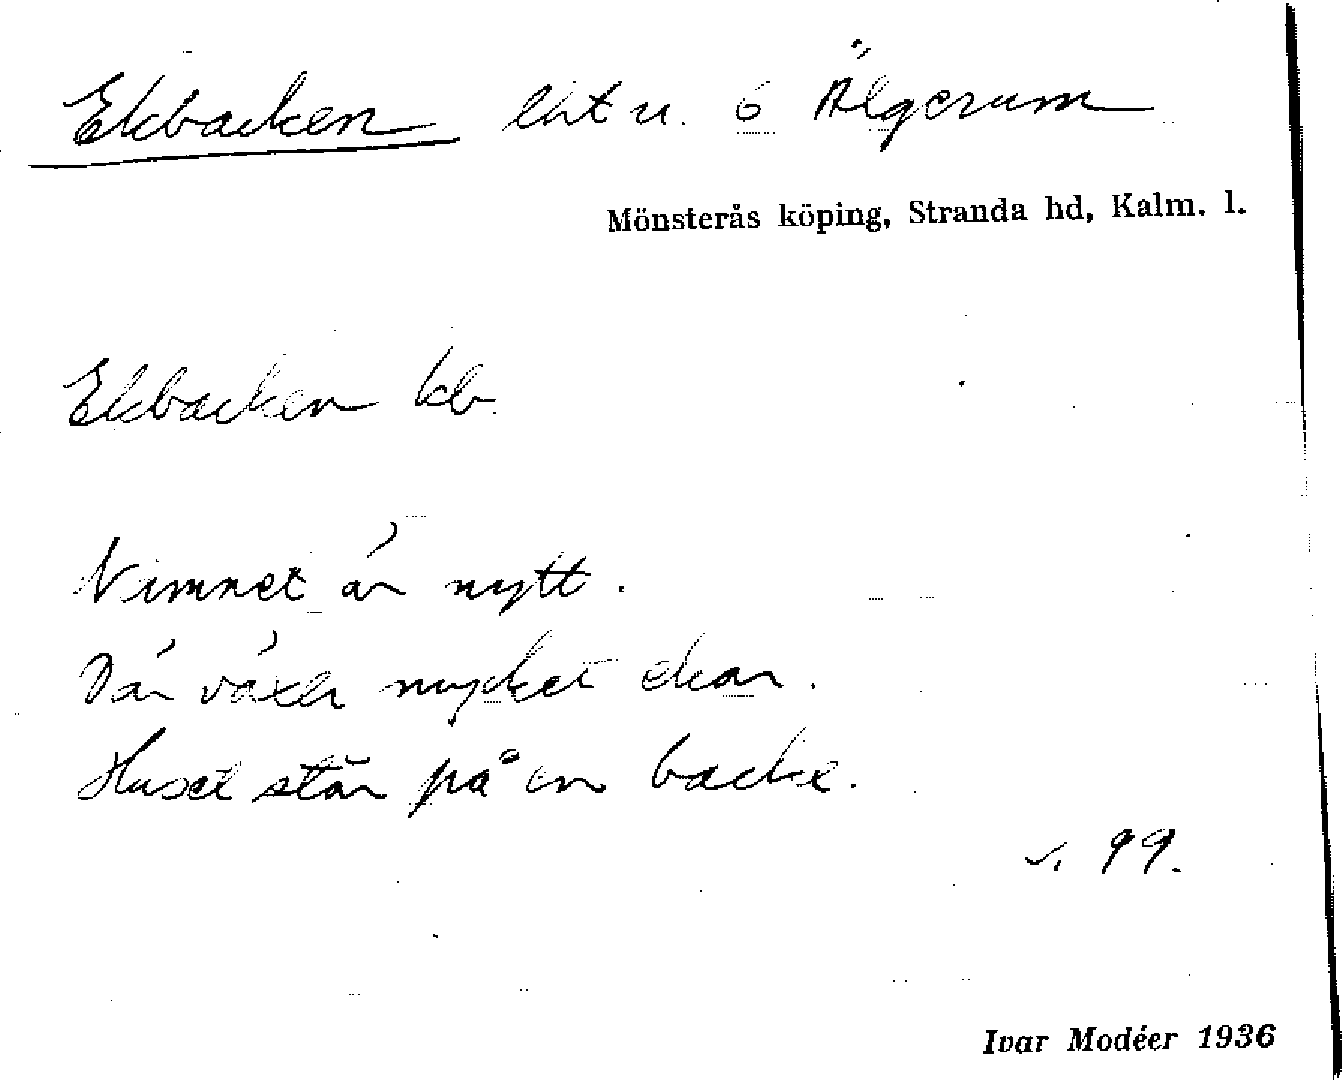 Ekbacken lht u. 6 Ålgerum
Mönsterås köping, Stranda hd, Kalm. l.
Ekbacken kb.
Namnet är nytt.
Där växer mycket ekar.
Huset står på en backe.
s. 99.
Ivar Modéer 1936